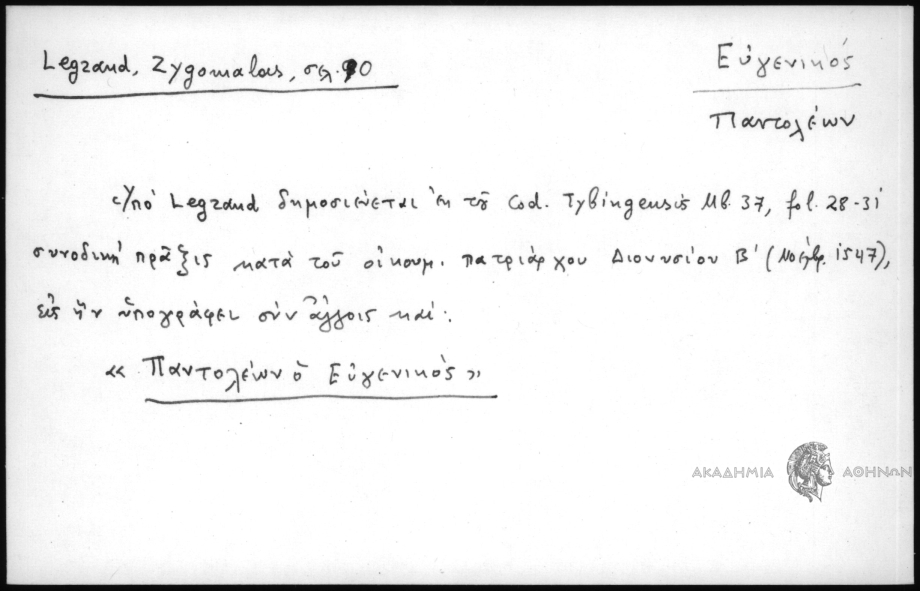 Legrand, Zygomalas, σελ. 90
Εὐγενικός
Παντολέων
Ὑπό Legrand δημοσιεύεται ἐκ τοῦ Cod. Tybingensis Mb. 37, fol. 28-31
συνοδική πρᾶξις κατὰ τοῦ οἰκουμ. πατριάρχου Διονυσίου Β' (Νοέμβρ. 1547),
εἰς ἣν ὑπογράφει σύν ἄλλοις καί:
« Παντολέων ὁ Εὐγενικὸς »
ΑΚΑΔΗΜΙΑ ΑΘΗΝΩΝ